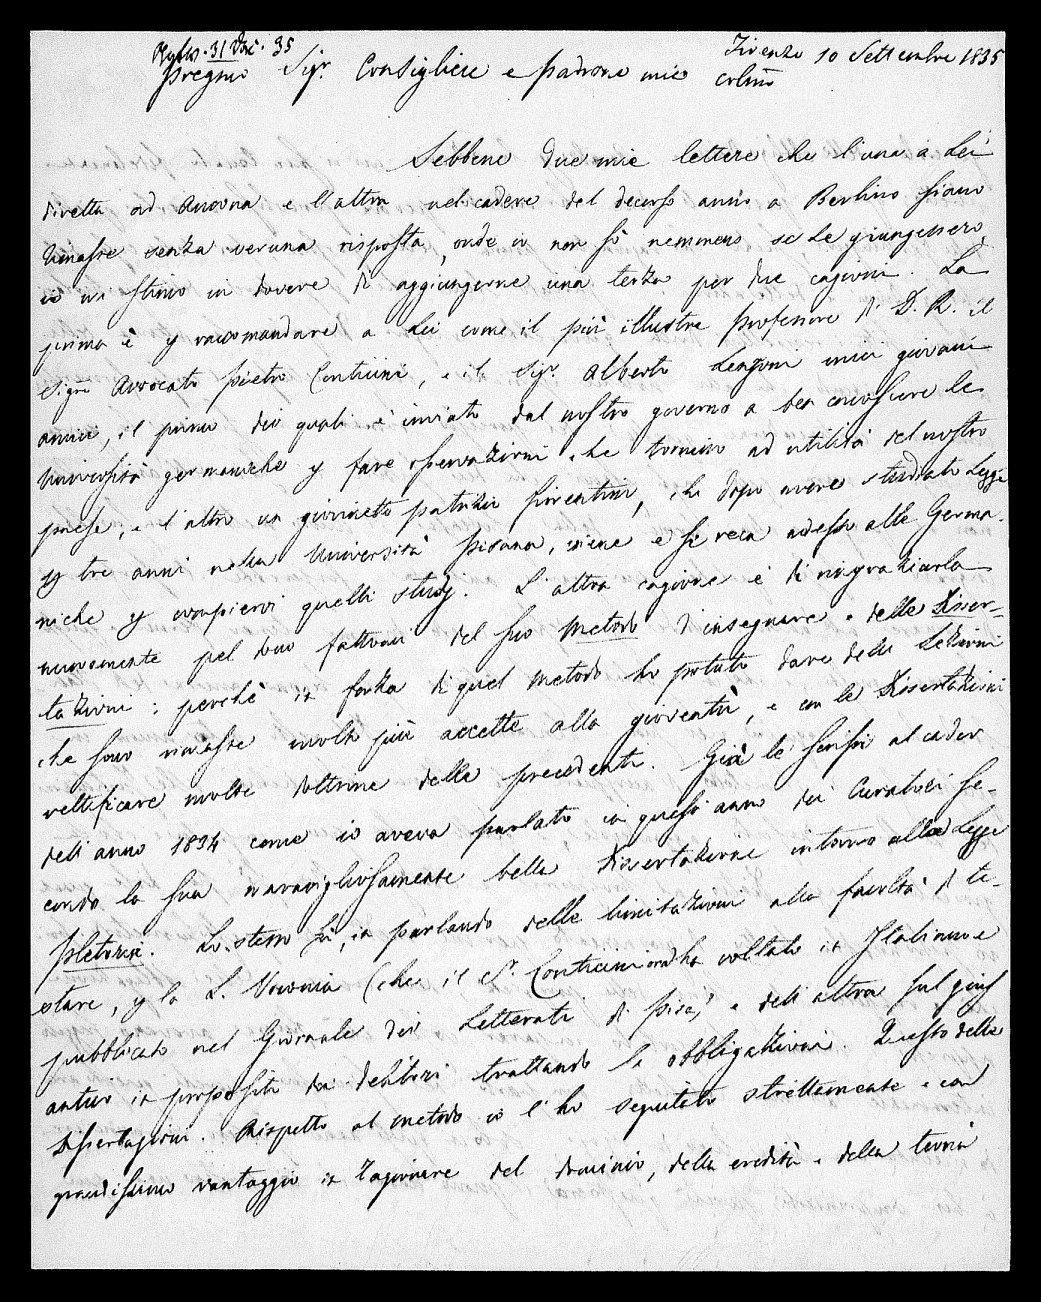 31 Dec. 35
Firenze 10 Settembre 1835
Pregmo Sigr. Consigliere e padrone mio colmo
Sebbene due mie lettere che l'una a Lei
diretta ad Ancona e l'altra nel cadere del decorso anno a Berlino siano
rimaste senza veruna risposta, onde io non so nemmeno se le giungessero,
io mi stimo in dovere di aggiungerne una terza per due cagioni. La
prima è p raccomandare a Lei come il più illustre professore di D. R. il
Sigre Avvocato Pietro Conticini, e il Sigr. Alberto miei giovani
amici, il primo dei quali è inviato dal nostro governo a ben conoscere le
Università germaniche p fare osservazioni che tornino ad utilità del nostro
paese, e l'altro un giovinetto patrizio fiorentino, che dopo avere studiato Legge
p tre anni nella Università Pisana, viene e si reca adesso alle Germa-
niche p compiervi quelli studj. L'altra cagione è di ringraziarla
nuovamente pel dono fattomi del suo Metodo d'insegnare e delle Disser-
tazioni: perchè in forza di quel Metodo ho potuto dare delle Lezioni
che sono riuscite molto più accette alla gioventù, e con le Dissertazioni
rettificare molte dottrine delle precedenti. Già le scrissi al cader
dell'anno 1834 come io aveva parlato in quest'anno dei Curatori se-
condo la sua maravigliosamente bella Dissertazione intorno alla Legge
Pletoria. Lo stesso fu, in parlando delle limitazioni alla facoltà di te-
stare, p la L. Voconia (che il Sr. Conticini ha voltato in Italiano e
pubblicato nel Giornale dei Letterati di Pisa) e dell'altra sul gius
antico in proposito dei debitori trattando le obbligazioni. Questo delle
Dissertazioni. Rispetto al metodo io l'ho seguitato strettamente e con
grandissimo vantaggio in ragionare del dominio, della eredità e della teoria